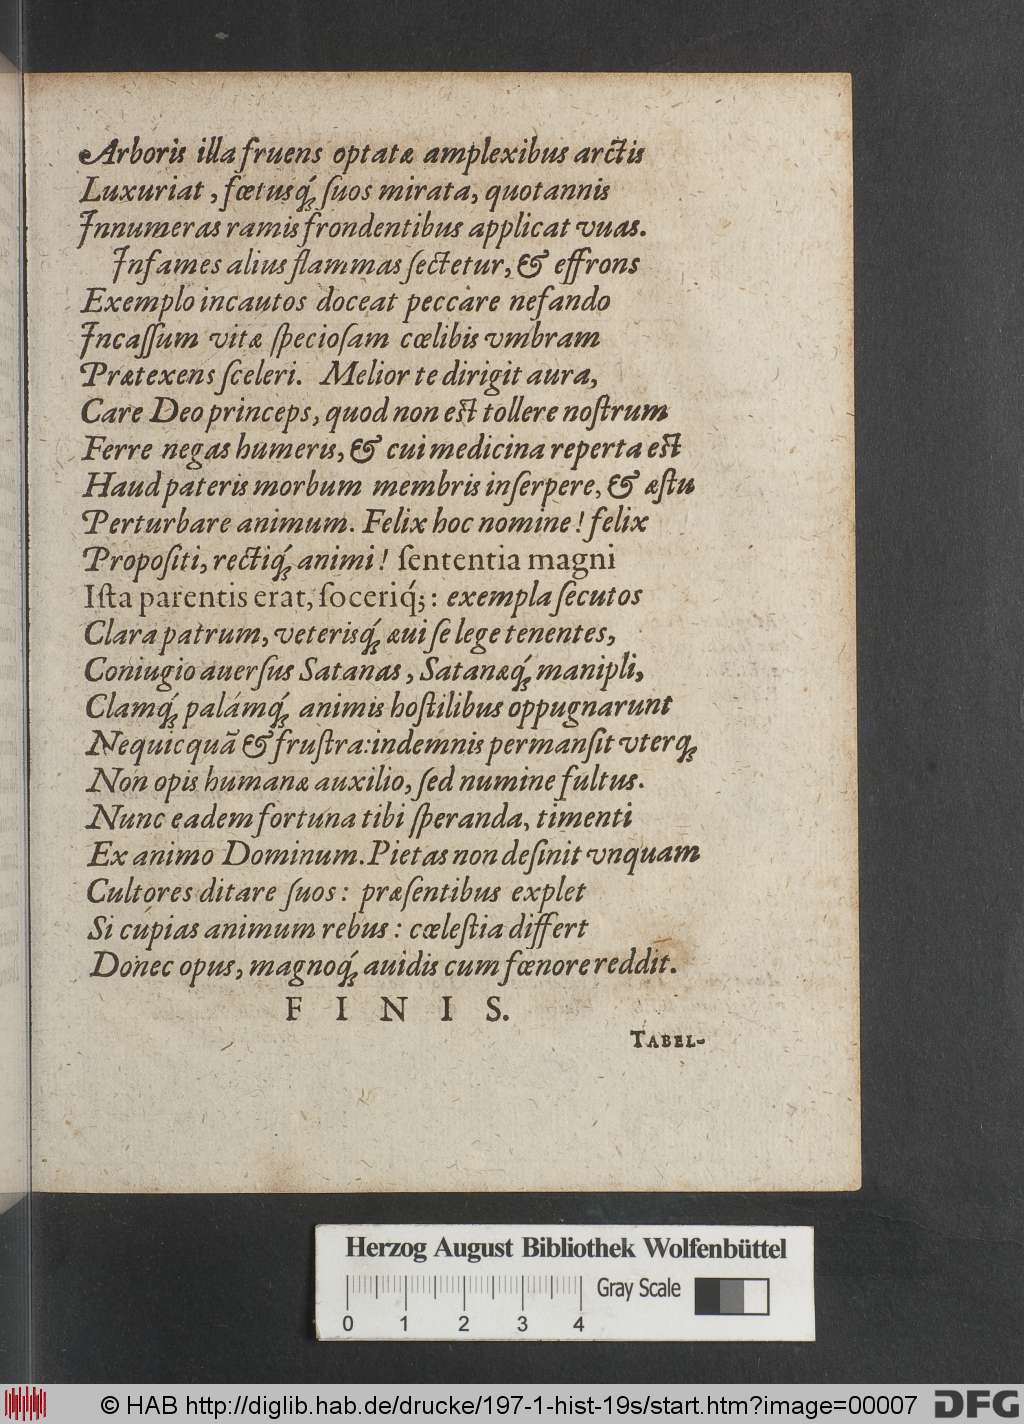 Arboris illa fruens optatæ amplexibus arctis
Luxuriat, fœtusq́; ſuos mirata, quotannis
Innumeras ramis frondentibus applicat vuas.
Infames alius flammas ſectetur, & effrons
Exemplo incautos doceat peccàre nefando
Incaſſum vitæ ſpecioſam cœlibis vmbram
Prætexens ſceleri. Melior te dirigit aura,
Care Deo princeps, quod non est tollere noſtrum
Ferre negas humeris, & cui medicina reperta est
Haud pateris morbum membris inſerpere, & æſtu
Perturbare animum. Felix hoc nomine! felix
Propoſiti, rectiq́; animi! ſententia magni
Iſta parentis erat, ſoceriq́;: exempla ſecutos
Clara patrum, veterisq́; æui ſe lege tenentes,
Coniugio auerſus Satanas, Satanæq́; manipli,
Clamq́; palámq́; animis hoſtilibus oppugnarunt
Nequicquã & fruſtra: indemnis permanſit vterq;
Non opis humanæ auxilio, ſed numine fultus.
Nunc eadem fortuna tibi ſperanda, timenti
Ex animo Dominum. Pietas non deſinit vnquam
Cultores ditare ſuos: præſentibus explet
Si cupias animum rebus: cœleſtia differt
Donec opus, magnoq́; auidis cum fœnore reddit.
FINIS.
TABEL-
Herzog August Bibliothek Wolfenbüttel
Gray Scale
0 1 2 3 4
© HAB http://diglib.hab.de/drucke/197-1-hist-19s/start.htm?image=00007
DFG